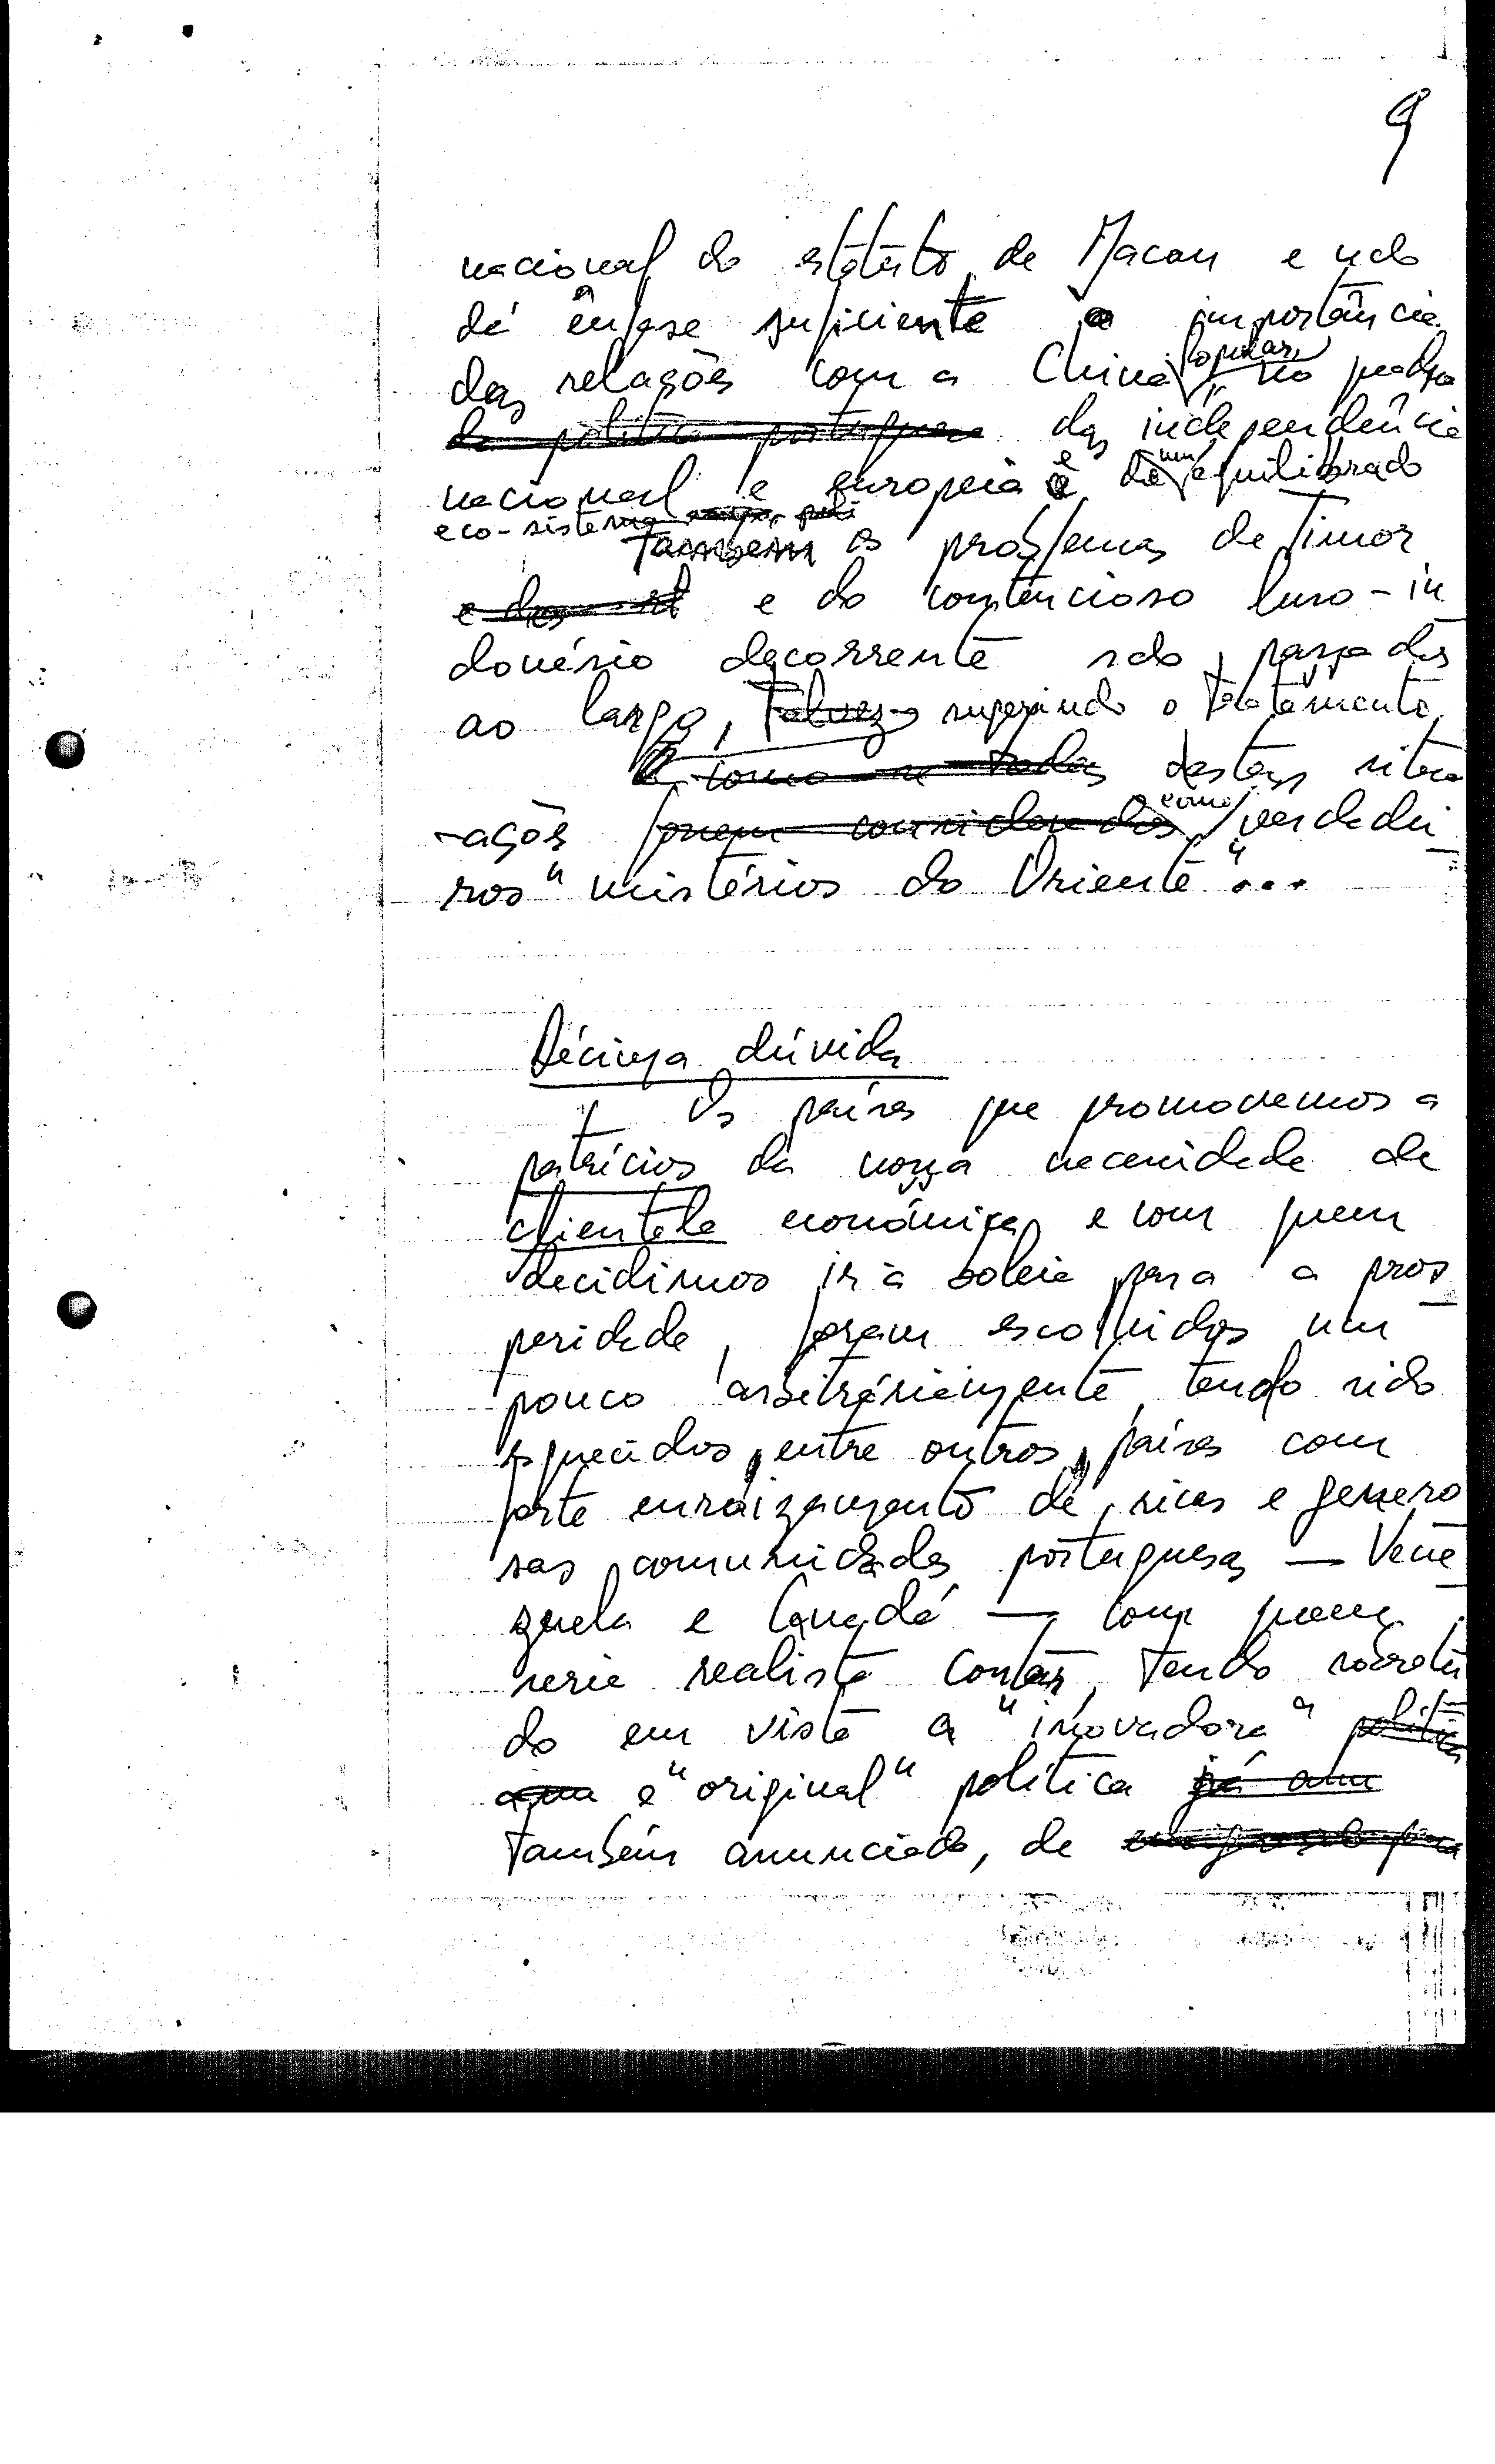 9
nacional do estatuto de Macau e não
dá ênfase suficiente à importância
das relações com a China Popular no
da política portuguesa das independência
nacional e europeia e de um equilibrado
eco-sistema
Também os problemas de Timor
e do contencioso luso-in
donésio decorrente são passados
ao largo, Talvez sugerindo o tratamento
como se todas destas situa
-ações fossem consideradas como verdadei
ros "mistérios do Oriente"...
Décima dúvida
Os países que promovemos a
patrícios da nossa necessidade de
clientela económica, e com quem
decidimos ir à boleia para a pros
peridade, foram escolhidos um
pouco arbitráriamente, tendo sido
esquecidos, entre outros, países com
forte enraizamento de ricas e genero
sas comunidades portuguesas — Vene
zuela e Canadá — com quem
seria realista contar, tendo sobretu
do em vista a "inovadora" política
e "original" política já
também anunciada, de